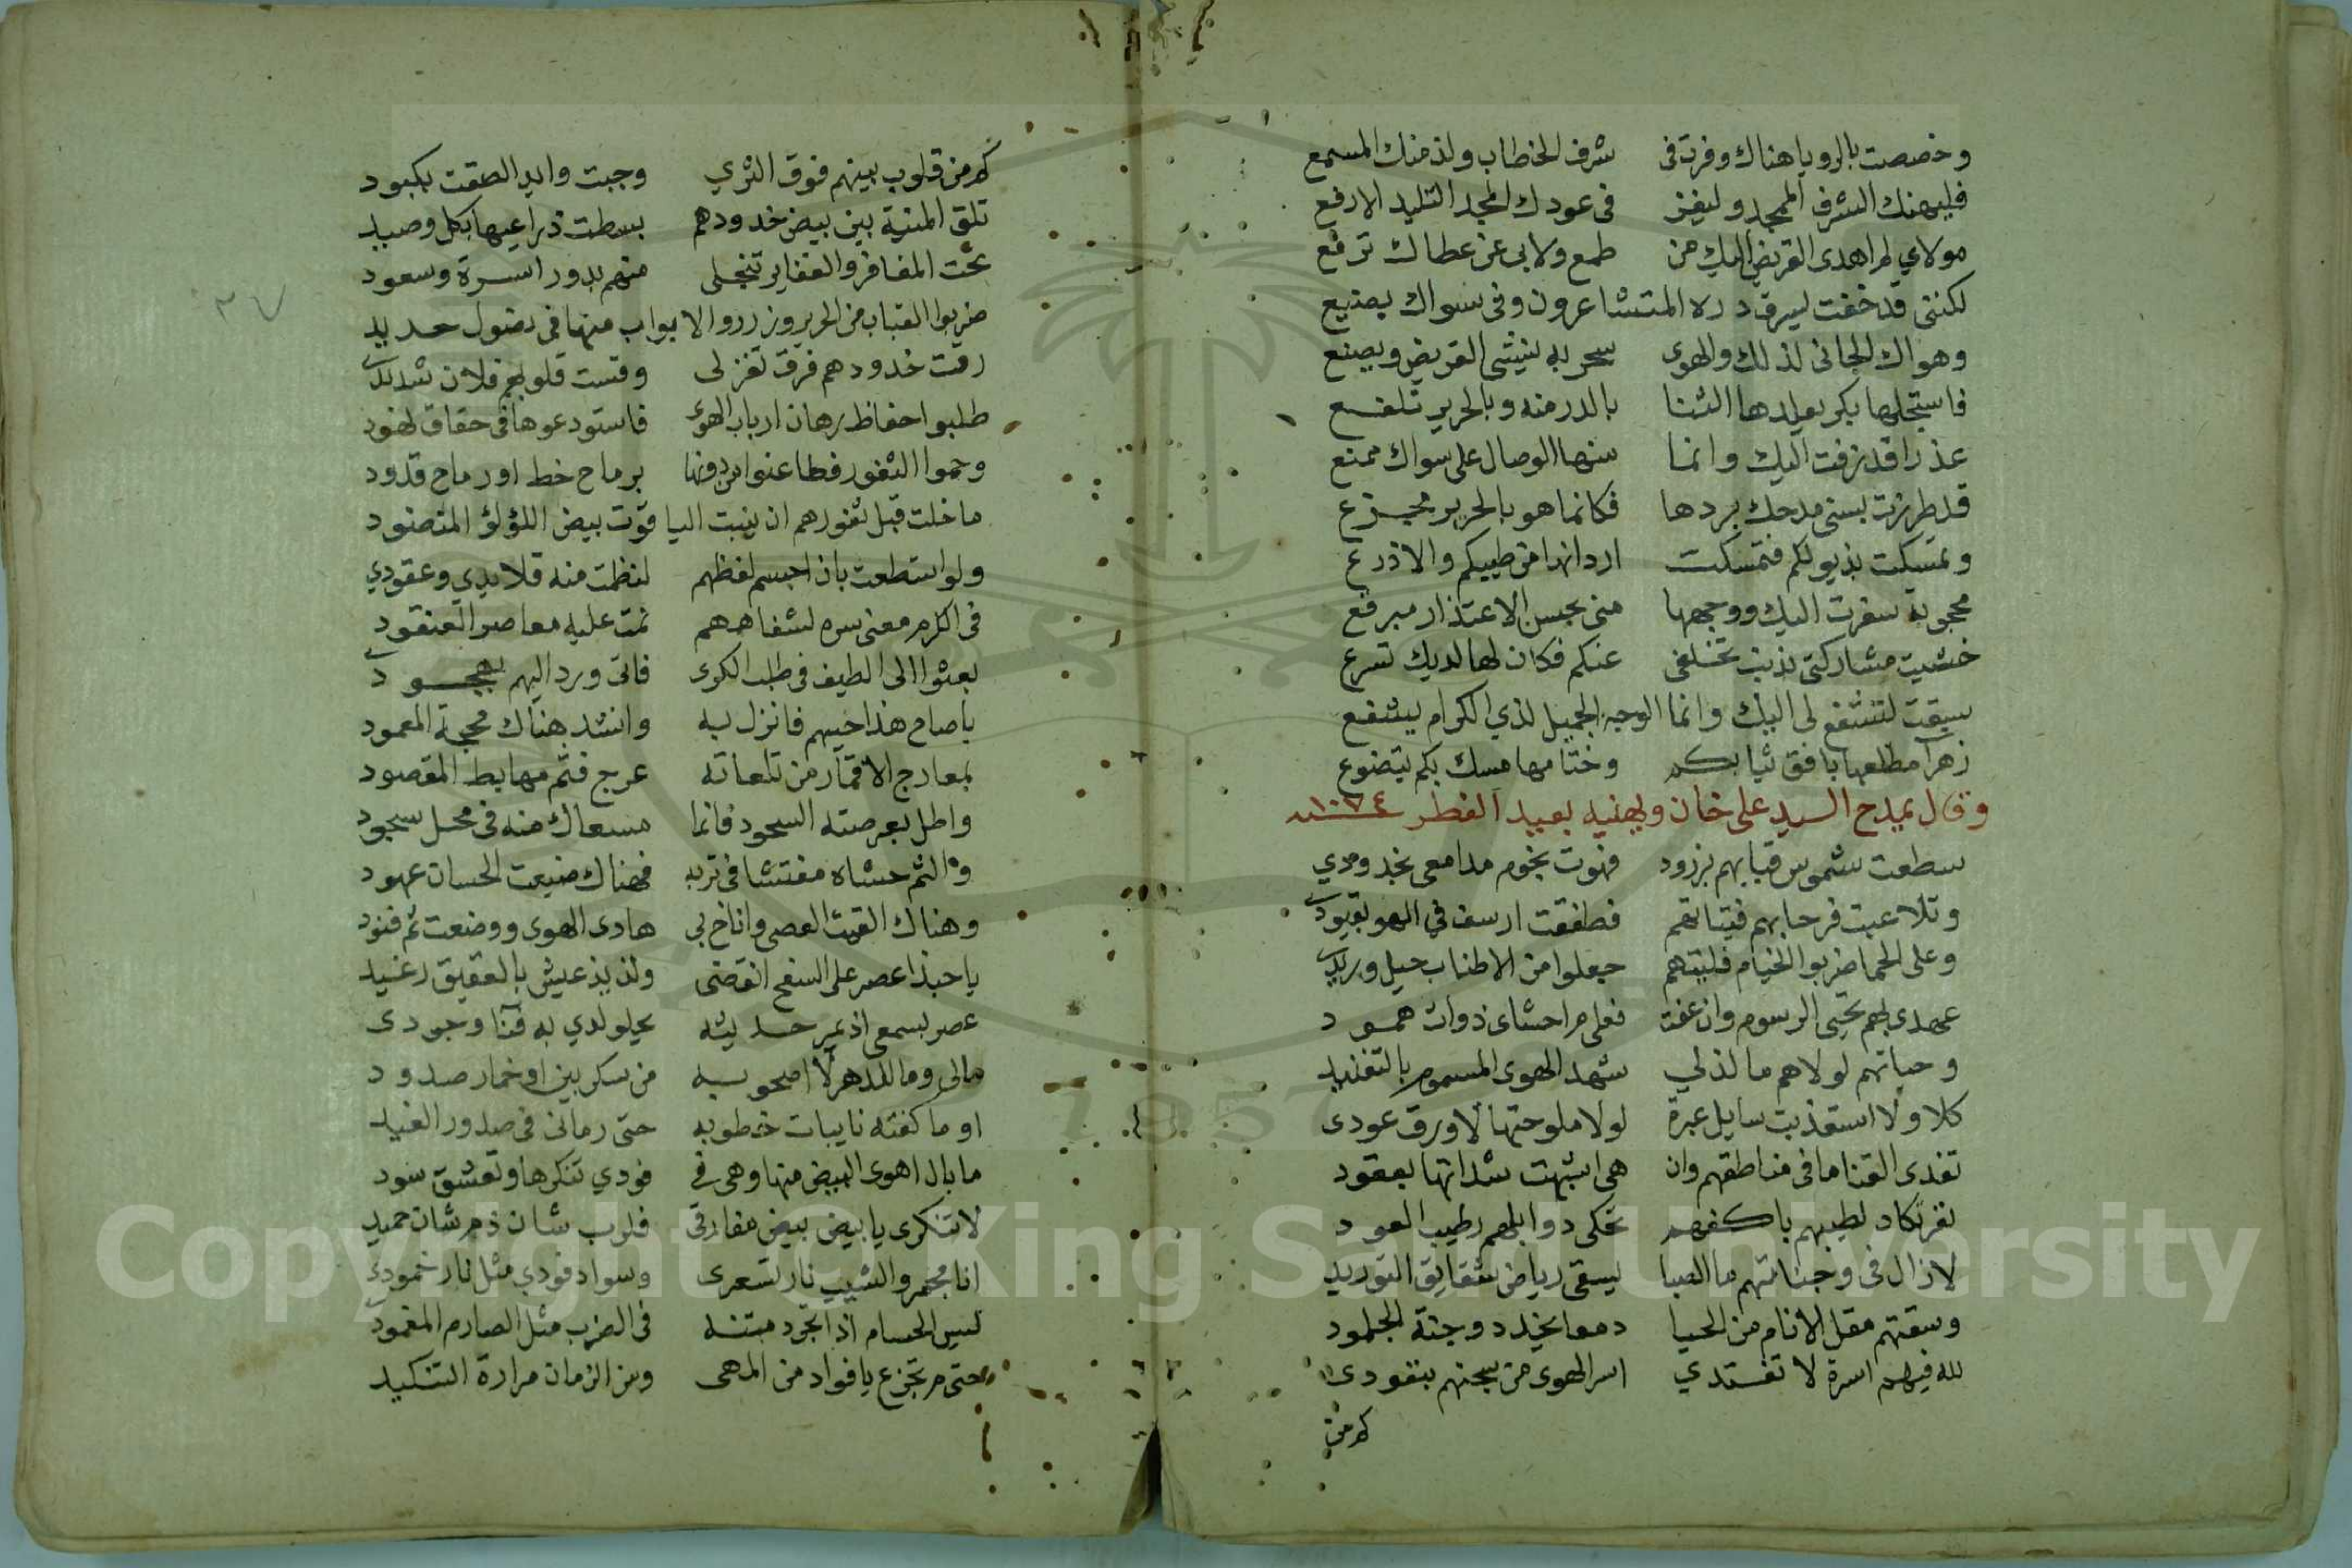 وخصصت بالرويا هناك وفزت في شرف الخطاب ولذ منك المسمع
فليهنك الشرف الممجد وليفز في عودك المجد التليد الارفع
مولاي لم اهدى القريض اليك من طمع ولا بي عن عطاك ترفع
لكنني قد خفت ليسرق دره المتشاعرون وفي سواك يضيع
وهواك الجاني لذلك والهوى سحر به ينشى القريض ويصنع
فاستجلها بكر يعلدها الثنا بالدر منه وبالحرير تلفع
عذرا قد زفت اليك وانما منها الوصال على سواك ممنع
قد طرزت بسنى مدحك بردها فكانما هو بالحرير مجزع
وتمسكت بذيولكم فتمسكت اردانها من طيبكم والاذرع
محجوبة سفرت اليك ووجهها منى بحسن الاعتذار مبرقع
خشيت مشاركتي بذنب تخلفي عنكم فكان لها لديك تسرع
سبقت لتشفع لي اليك وانما الوجه الجميل لذي الكرام يشفع
زهرا مطلعها بافق ثنا بكم وختامها مسك بكم يتضوع
وقال يمدح السيد علي خان ويهنيه بعيد الفطر سنة ١٠٧٤
سطعت شموس قبابهم بزرود فهوت نجوم مدامعي بخدودي
وتلاعبت فرحا بهم فتياتهم فطفقت ارسف في الهوى بقيود
وعلى الحما ضربوا الخيام فليتهم جعلوا من الاطناب حبل وريد
عهدي بهم تحيى الرسوم وان عفت فعلى م احشاى ذوات همود
وحياتهم لولاهم ما لذ لي شهد الهوى المسموم بالتفنيد
كلا ولا استعذبت سايل عبرة لولا ملوحتها لاورق عودى
تفدى القنا ما في مناطقهم وان هي اشبهت شداتها بعقود
نفر تكاد لطيبهم باكفهم تحكي ذوابلهم رطيب العود
لا زال في وجناتهم ما الصبا يسقى رياض شقايق التوريد
وسقتهم مقل الانام من الحيا دمعا يخدد وجنة الجلمود
لله فيهم اسرة لا تفتدي اسر الهوى من سجنهم بنقودى
كم من
كم من قلوب بينهم فوق الثري وجبت وايد الصقت بكبود
تلق المنية بين بيض خدودهم بسطت ذراعيها بكل وصيد
تحت المغافر والغفاير تنجلى منهم بدور اسرة وسعود
ضربوا القباب من الحرير وزرروا الابواب منها في نصول حديد
رقت خدودهم فرق تغزلى وقست قلوبهم فلان شديد
طلبوا حفاظ رهان ارباب الهوى فاستودعوها في حقاق نهود
وحموا الثغور فطاعنوا من دونها برماح خط او رماح قدود
ما خلت قبل ثغورهم ان ينبت الياقوت بيض اللؤلؤ المنضود
ولو استطعت بان اجسم لفظهم لنظمت منه قلايدي وعقودي
في الكرم معنى سره لشفاههم نمت عليه معاصر العنقود
بعثوا الى الطيف في طلب الكرى فاتى ورد اليهم بهجود
يا صاح هذا حيهم فانزل به وانشد هناك محجة المعمود
بمعارج الاقمار من تلعاته عرج فثم مهابط المقصود
واطل بعرصته السجود فانما مسعاك منه في محل سجود
والثم حشاه مفتشا في تربه فهناك ضيعت الحسان عهود
وهناك القيت العصى واناخ بي هادى الهوى ووضعت ثم قتود
يا حبذا عصر على السفح انقضى ولذيذ عيش بالعقيق رغيد
عصر بسمعي اذ يمر حديثه يحلو لدي به فنا وجودى
مالى وما للدهر لا اصحو به من سكر بين او خمار صدود
او ما كفته نايبات خطوبه حتى رمانى في صدور الغيد
ما بال اهوى البيض منها وهي في فودي تنكرها وتعشق سود
لا تنكرى يا بيض بيض مفارقى فلرب شان ذم شان حميد
انا مجمر والشيب نار تسعرى وسواد فودي مثل نار خمودي
ليس الحسام اذا تجرد متنه في الضرب مثل الصارم المغمود
حتى م تجزع يا فواد من المهى ومن الزمان مرارة التنكيد
٣٧
Copyright © King Saud University
1957